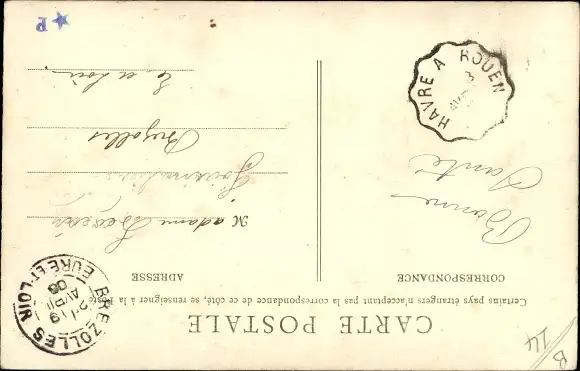 CARTE POSTALE
Certains pays étrangers n'acceptant pas la correspondance de ce côté, se renseigner à la Poste
CORRESPONDANCE
ADRESSE
Bonne
Santé
Madame
Brezolles
E et Loir
HAVRE A ROUEN
3
BREZOLLES
EURE ET LOIR
AVRIL
06
B
14
P